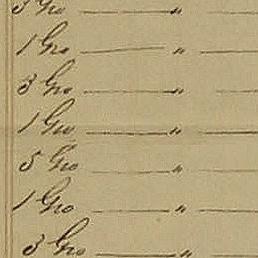 3 Gro — " —
1 Gro — " —
3 Gro — " —
1 Gro — " —
5 Gro — " —
1 Gro — " —
3 Gro — " —